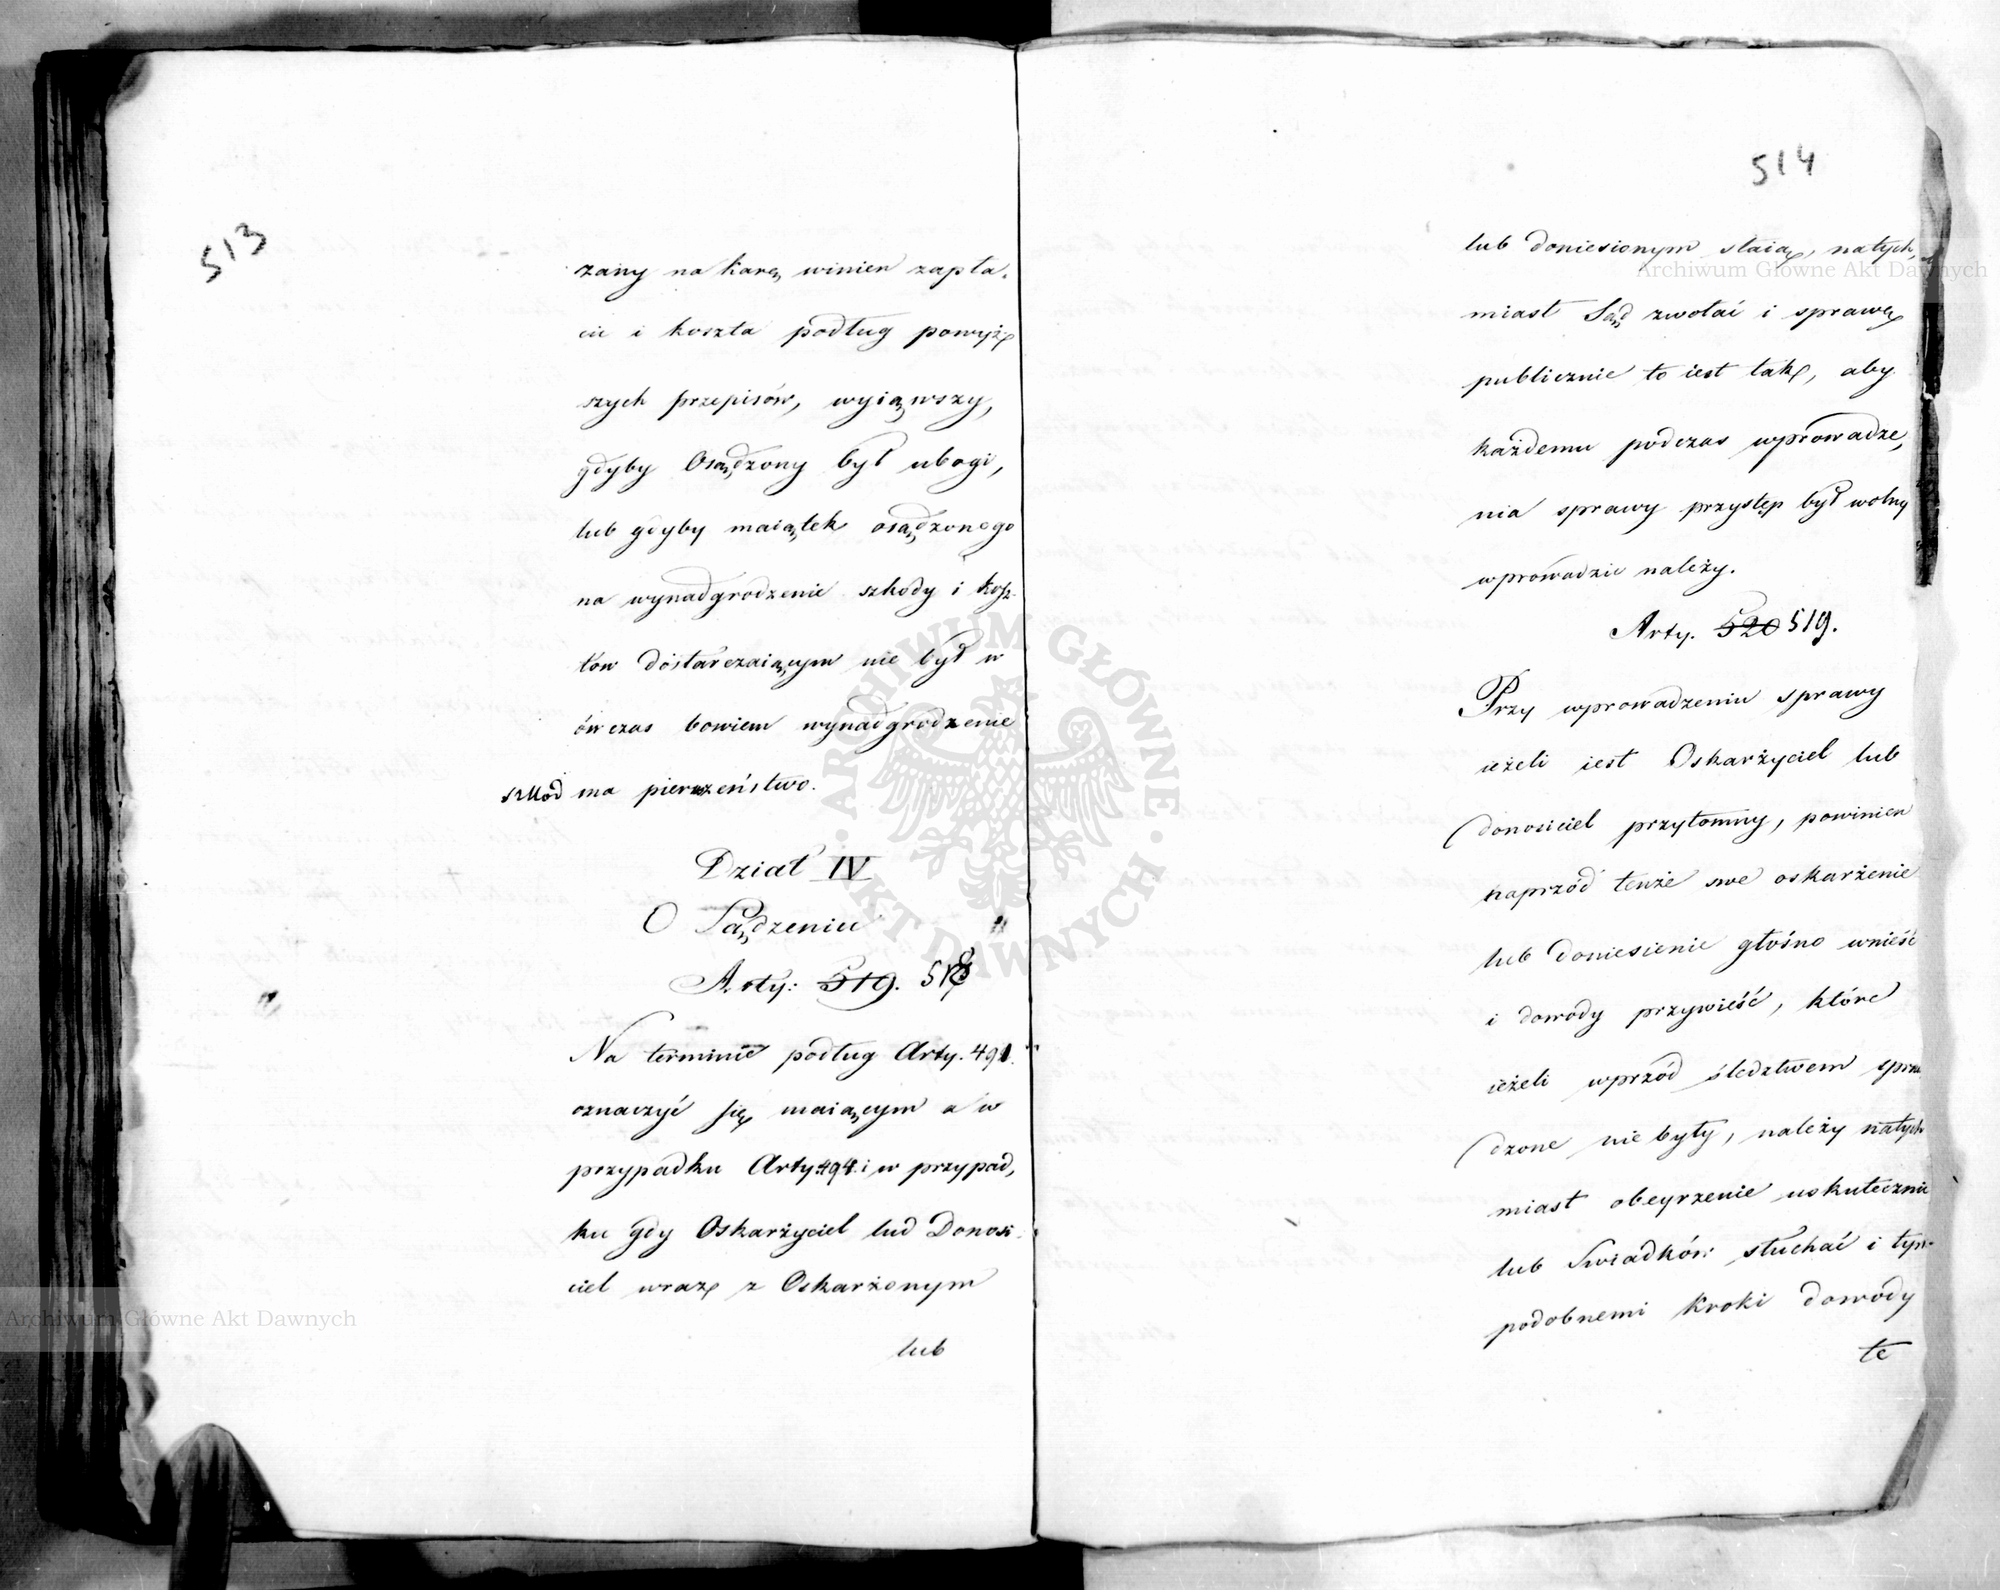 513
zany na karę winien zapła-
cić i koszta podług powyż-
szych przepisów, wyiąwszy,
gdyby Osądzony był ubogi,
lub gdyby maiątek osądzonego
na wynadgrodzenie szkody i kosz-
tów dostarczaiącym nie był w
ówczas bowiem wynadgrodzenie
szkód ma pierwszeństwo.
Dział IV
O Sądzeniu
Arty: 519. 518
Na terminie podług Arty. 491.
oznaczyć się maiącym a w
przypadku Arty 494. i w przypad,
ku gdy Oskarżyciel lud Donosi-
ciel wraz z Oskarżonym
lub
514
lub doniesionym staią, natych,
miast Sąd zwołać i sprawę
publicznie to iest tak, aby
każdemu podczas wprowadze,
nia sprawy przystęp był wolny
wprowadzić należy.
Arty. 520 519.
Przy wprowadzeniu sprawy
ieżeli iest Oskarżyciel lub
donosiciel przytomny, powinien
naprzód tenże swe oskarżenie
lub doniesienie głośno wnieść
i dowody przywieść, które
ieżeli wprzód śledztwem spraw
dzone nie były, należy natych
miast obeyrzenie uskutecznić
lub Swiadków słuchać i tym
podobnemi kroki dowody
te
Archiwum Główne Akt Dawnych
Archiwum Główne Akt Dawnych
ARCHIWUM GŁÓWNE · AKT DAWNYCH ·